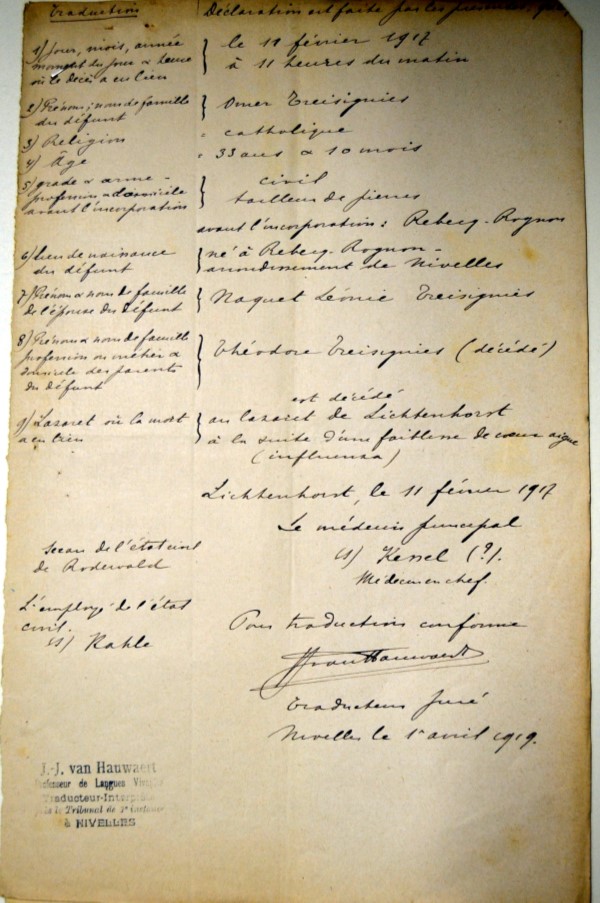 Traduction
Déclaration est faite par les présentes, que,
1) Jour, mois, année
moment du jour & heure
où le décès a eu lieu
le 11 février 1917
à 11 heures du matin
2) Prénoms, noms de famille
du défunt
Omer Treisignies
3) Religion
" catholique
4) Âge
" 33 ans & 10 mois
5) grade & arme -
profession & domicile
avant l'incorporation
civil
tailleur de pierres
avant l'incorporation: Rebecq-Rognon
6) Lieu de naissance
du défunt
né à Rebecq-Rognon -
arrondissement de Nivelles
7) Prénom & nom de famille
de l'épouse du défunt
Naquet Léonie Treisignies
8) Prénoms & noms de famille
profession ou métier &
domicile des parents
du défunt
Théodore Treisignies (décédé)
9) Lazaret où la mort
a eu lieu
est décédé
au lazaret de Lichtenhorst
à la suite d'une faiblesse de coeur aigue
(influenza)
Lichtenhorst, le 11 février 1917
Le médecin principal
(s) Kessel (?).
Médecin en chef.
Sceau de l'état civil
de Rodewald
L'employé de l'état
civil.
(s) Rahle
Pour traduction conforme
J J van Hauwaert
Traducteur Juré
Nivelles le 1r avril 1919.
J.-J. van Hauwaert
Professeur de Langues Vivantes
Traducteur-Interprète
le Tribunal de 1e Instance
à NIVELLES